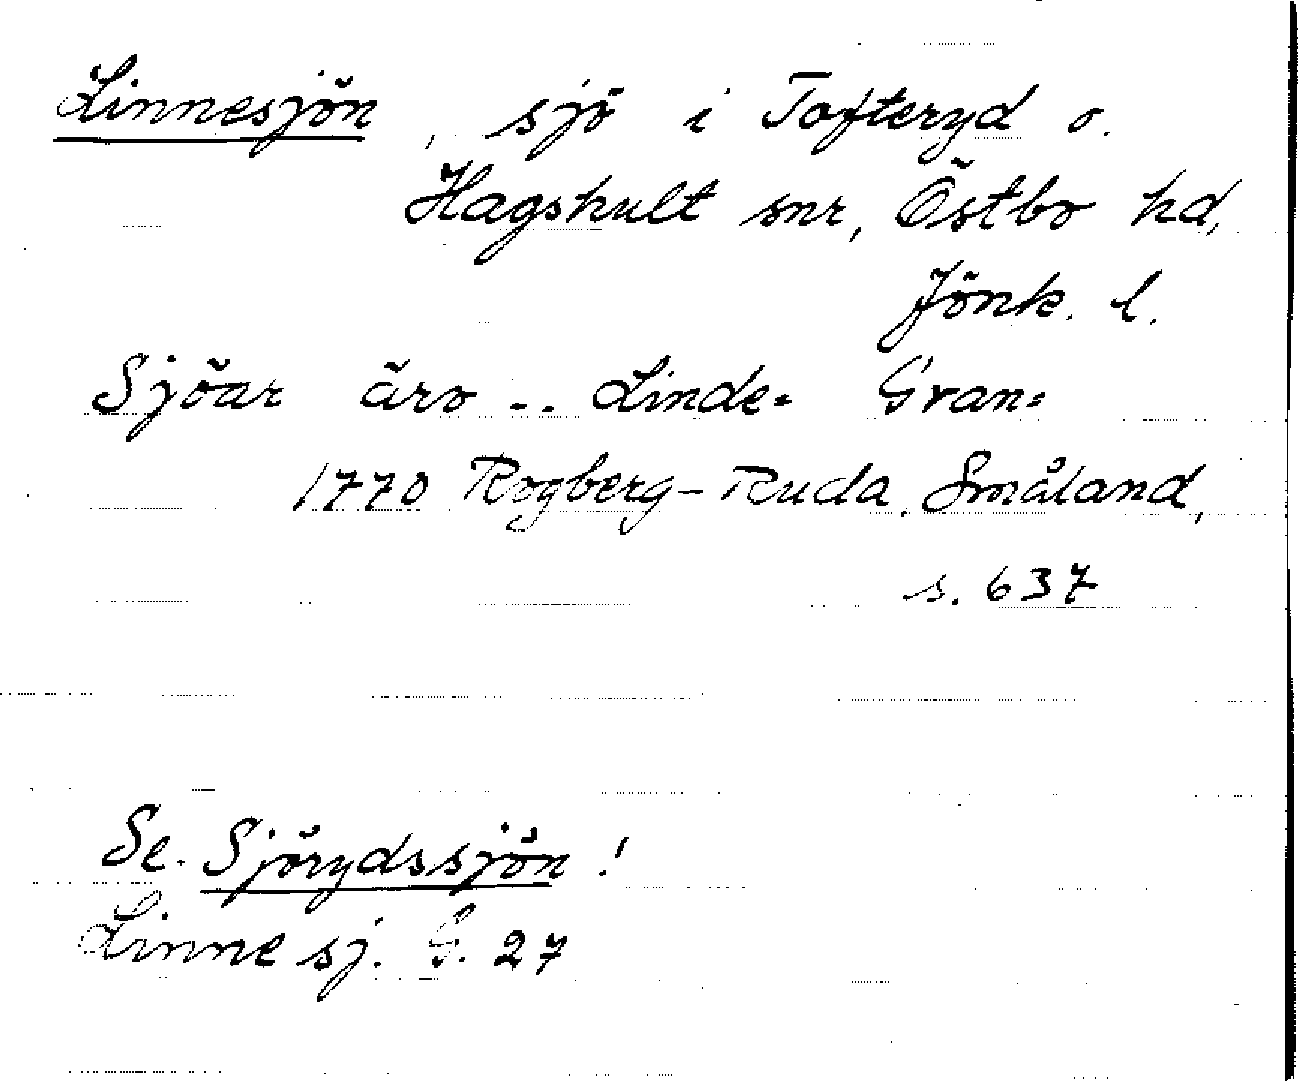 Linnesjön, sjö i Tofteryd o.
Hagshult snr, Östbo hd,
Jönk. l.
Sjöar äro .. Linde= Gran=
1770 Rogberg-Ruda, Småland,
s. 637
Se. Sjörydssjön !
Linnesj. G. 27